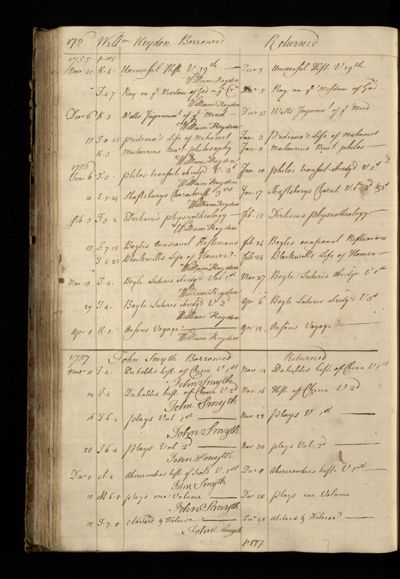 178 Willm Keydon Borrowed Returned
1755 p. 108
Nov 20 K. 4 Universal Hist. V. 19th — Dec 5 Universal Hist. V 19th
William Keydon
I. 4. 7 Ray on ye Wisdom of God Dec 5 Ray on ye Wisdom of God
William Keydon
Decr 6 K. 5 Watts Improvmt of ye Mind — Decr 13 Watts Improvmt of ye Mind
William Keydon
13 I. 8. 25 prideaux's Life of Mahomet Jan. 3 Prideaux's Life of Mahomet
K. 3 Maclaurins Newts philosophy Jan. 3 Maclaurins Newts philos
1756 William Keydon
Jan. 6 I. 0 philos. transact. abridg'd V. 2d Jan 10 philos transact. abridg'd V. 2d
William Keydon
10 E. 5. 24 Shaftesburys Jan. 17 Shaftsburys
William Keydon
feb. 3 I. 5. 2 Derham's physicotheology — feb. 12 Derhams Physicotheology
William Keydon
13 I. 7. 15 Boyles occasional Reflexions feb 24 Boyles occasional Reflexions
I. 4. 21 Blackwells Life of Homer feb 24 Blackwells Life of Homer
William Keydon
Mar 18 I. 4 Boyle Lectures abridg'd Vol. 1st Mar. 27 Boyle Lectures abridg'd V. 1st
William Keydon
29 I. 4 Boyle Lectures abridg'd V. 3d Apr 6 Boyle Lectures abridg'd V. 3d
William Keydon
Apr 8 K. 2 Ansons Voyage Apr 12 Ansons Voyage
William Keydon
1757 John Smyth Borrowed Returned
Nov 11 I. 4 Duhaldes hist. of China V. 1st Nov 14 Duhaldes hist. of China V. 1st
John Smyth
14 I. 4 Duhaldes hist. of China V. 2d Nov. 16 Hist. of China V 2d
John Smyth
16 I. 6. 4 plays Vol 1st Nov 23 plays V. 1st
John Smyth
23 I. 6. 4 plays Vol 2d Nov 30 plays Vol. 2d
John Smyth
Decr 2 A. 4 Abercrombies hist. of Scots V. 1st Decr 8 Abercrombies hist. V. 1st
John Smyth
12 M. 6. 8 plays one Volume Decr 28 plays one Volume
John Smyth
28 I. 7. 0 Abelard & Heloise Decr 29 Abelard & Heloise
John Smyth
p. 177